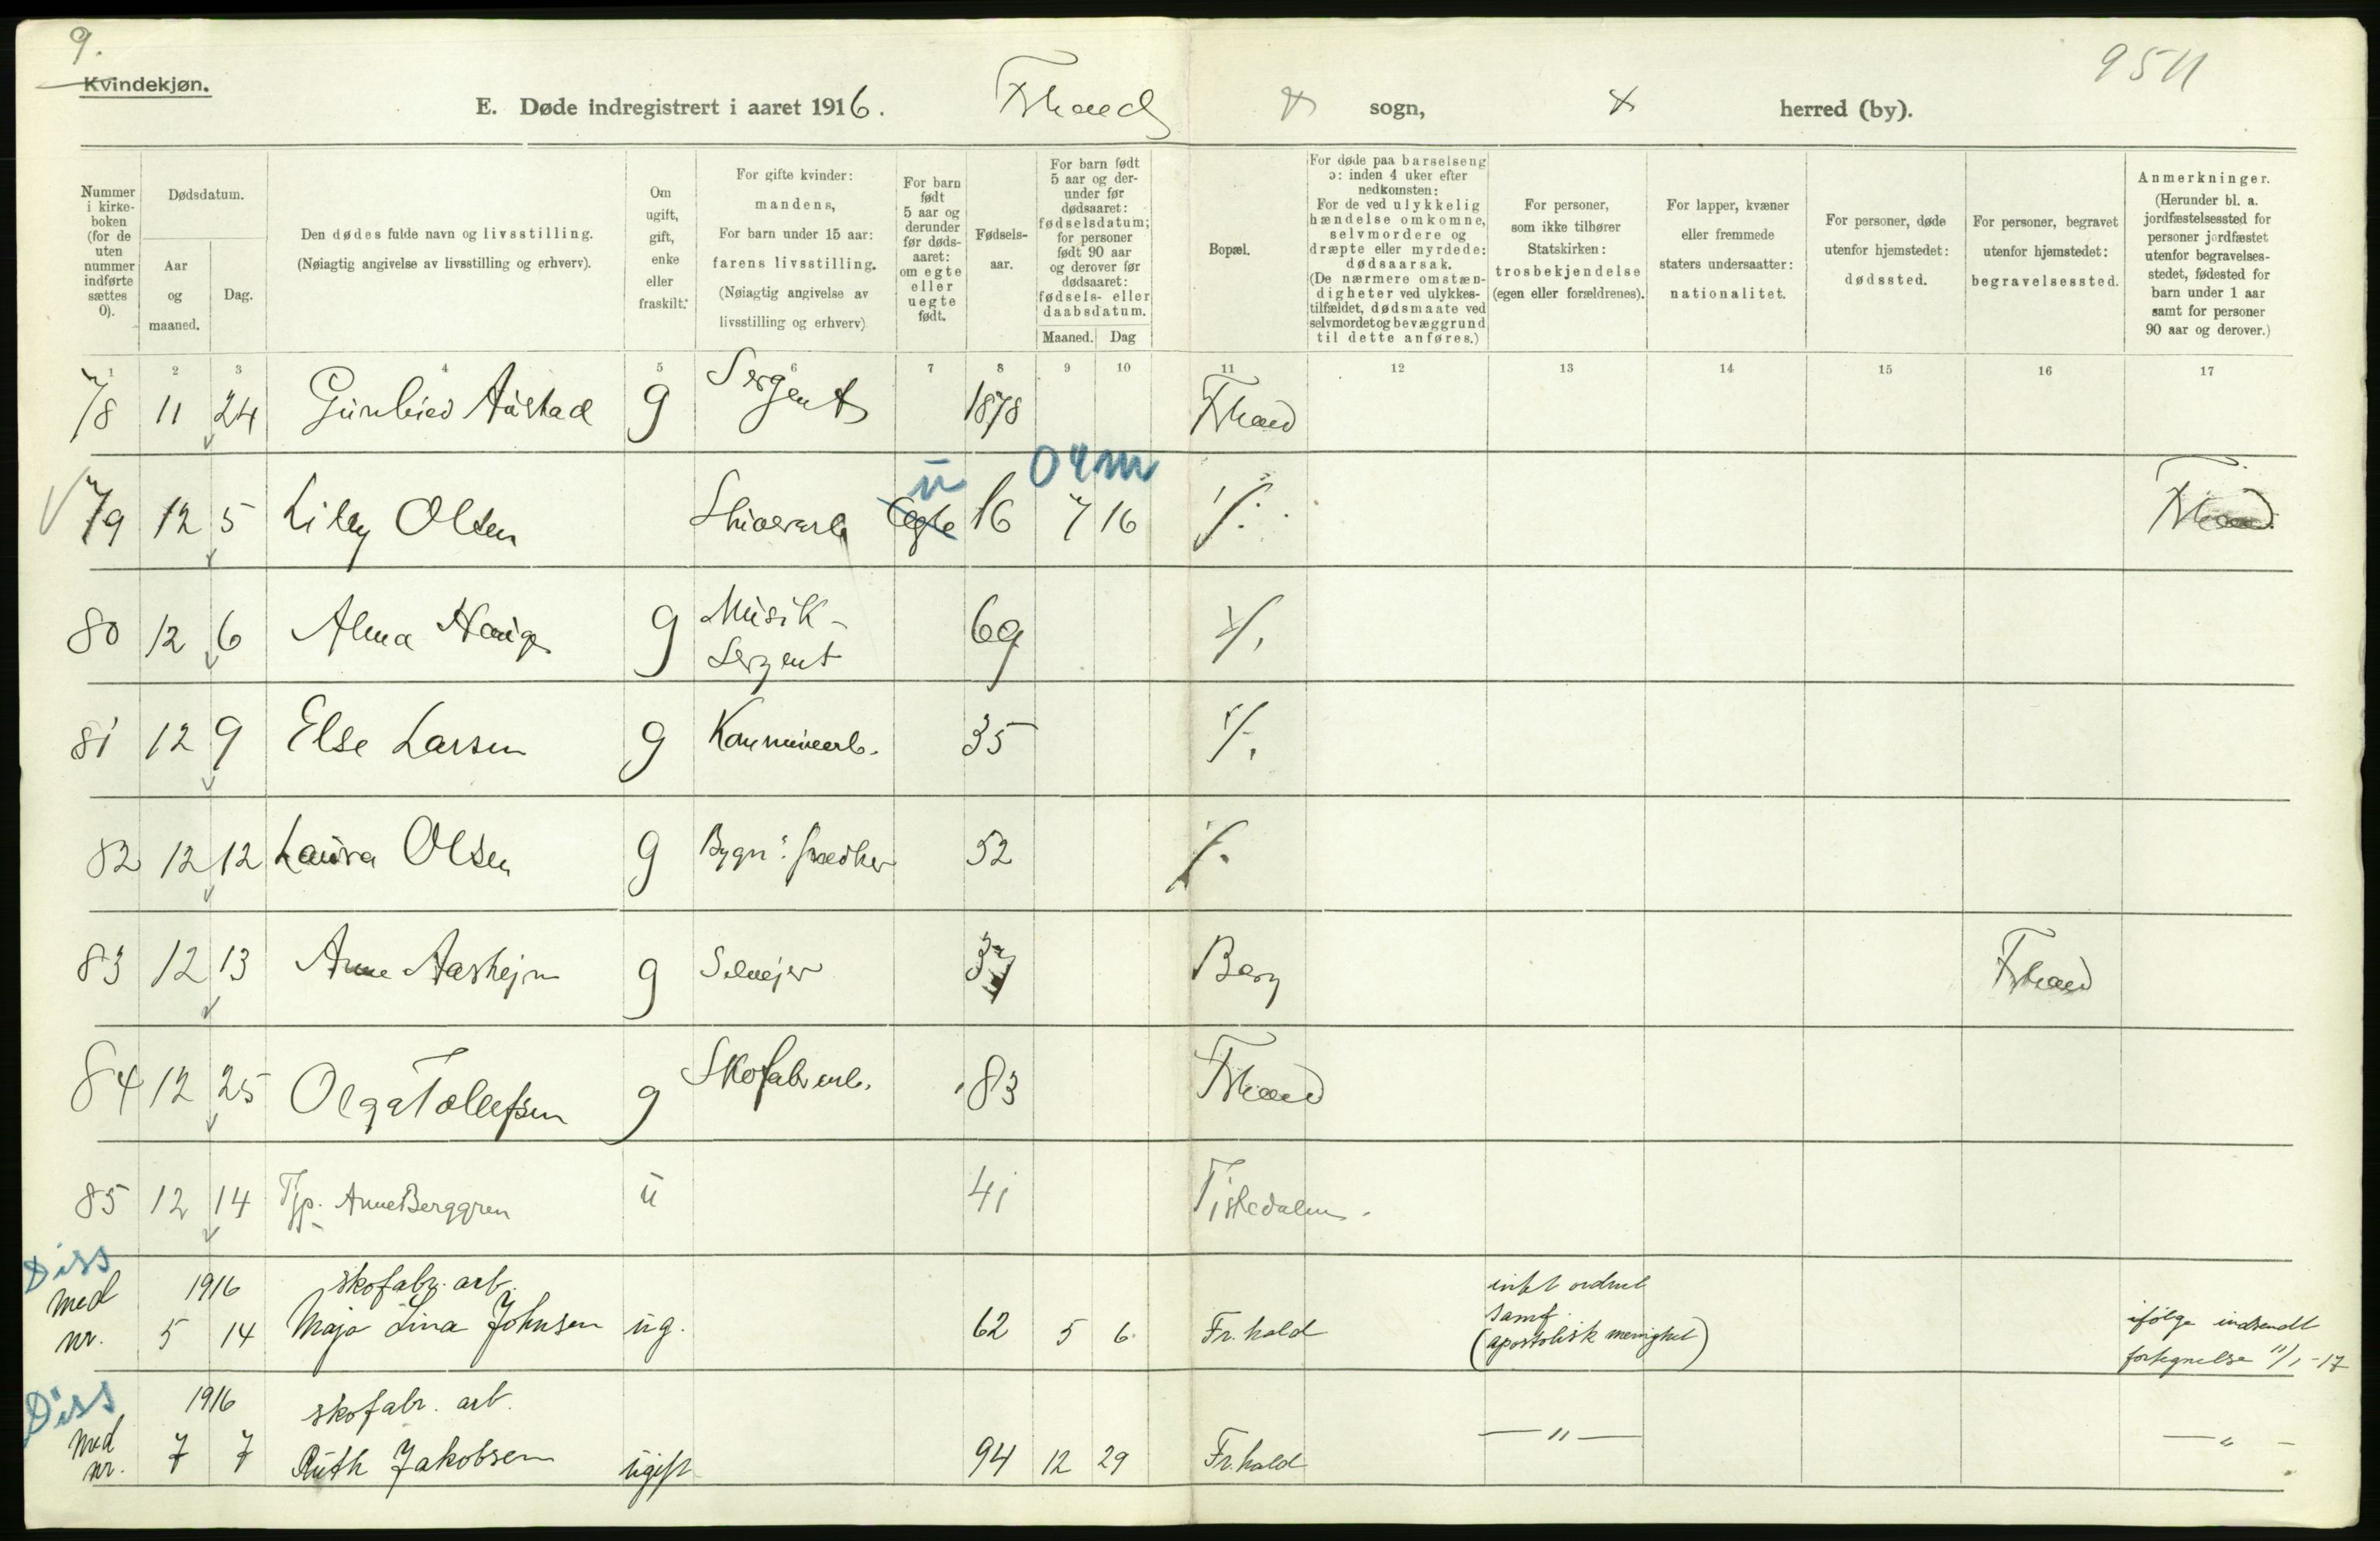 9.
Kvindekjøn.
9511
E. Døde indregistrert i aaret 1916. Fhald sogn, herred (by).
Nummer i kirke-boken (for de uten nummer indførte sættes 0).
Dødsdatum.
Aar og maaned.
Dag.
Den dødes fulde navn og livsstilling.
(Nøiagtig angivelse av livsstilling og erhverv).
Om ugift, gift, enke eller fraskilt.
For gifte kvinder: mandens,
For barn under 15 aar: farens livsstilling.
(Nøiagtig angivelse av livsstilling og erhverv)
For barn født 5 aar og derunder før døds-aaret: om egte eller uegte født.
Fødsels-aar.
For barn født 5 aar og der-under før dødsaaret: fødselsdatum; for personer født 90 aar og derover før dødsaaret: fødsels- eller daabsdatum.
Maaned. Dag
Bopæl.
For døde paa barselseng ɔ: inden 4 uker efter nedkomsten:
For de ved ulykkelig hændelse omkomne, selvmordere og dræpte eller myrdede: dødsaarsak.
(De nærmere omstæn-digheter ved ulykkes-tilfældet, dødsmaate ved selvmordet og bevæggrund til dette anføres.)
For personer, som ikke tilhører Statskirken: trosbekjendelse (egen eller forældrenes).
For lapper, kvæner eller fremmede staters undersaatter: nationalitet.
For personer, døde utenfor hjemstedet: dødssted.
For personer, begravet utenfor hjemstedet: begravelsessted.
Anmerkninger.
(Herunder bl. a. jordfæstelsessted for personer jordfæstet utenfor begravelses-stedet, fødested for barn under 1 aar samt for personer 90 aar og derover.)
1 2 3 4 5 6 7 8 9 10 11 12 13 14 15 16 17
78 11 24 Austad g Sergent 1878 Fhald
ü 04m
79 12 5 Lilly Olsen Egte 16 7 16 Fhald
80 12 6 Alma Hauge g Musik-Sergent 69
81 12 9 Else Larsen g 35
82 12 12 Laura Olsen g 52
83 12 13 Anne Aashejm g Selvejer 37 Berg Fhald
84 12 25 Olga Tollefsen g Skofabr arb. 83 Fhald
85 12 14 Tjp. Anne Berggren ü 41 Tistedalen.
Diss
med nr. 1916 5 14 skofabr. arb. Maja Lina Johnsen ug. 62 5 6 Fr.hald samf. (apostolisk menighet) ifølge indsendt fortegnelse 11/1-17
Diss
med nr. 1916 7 7 skofabr. arb. Ruth Jakobsen ugift 94 12 29 Fr.hald — " — — " —